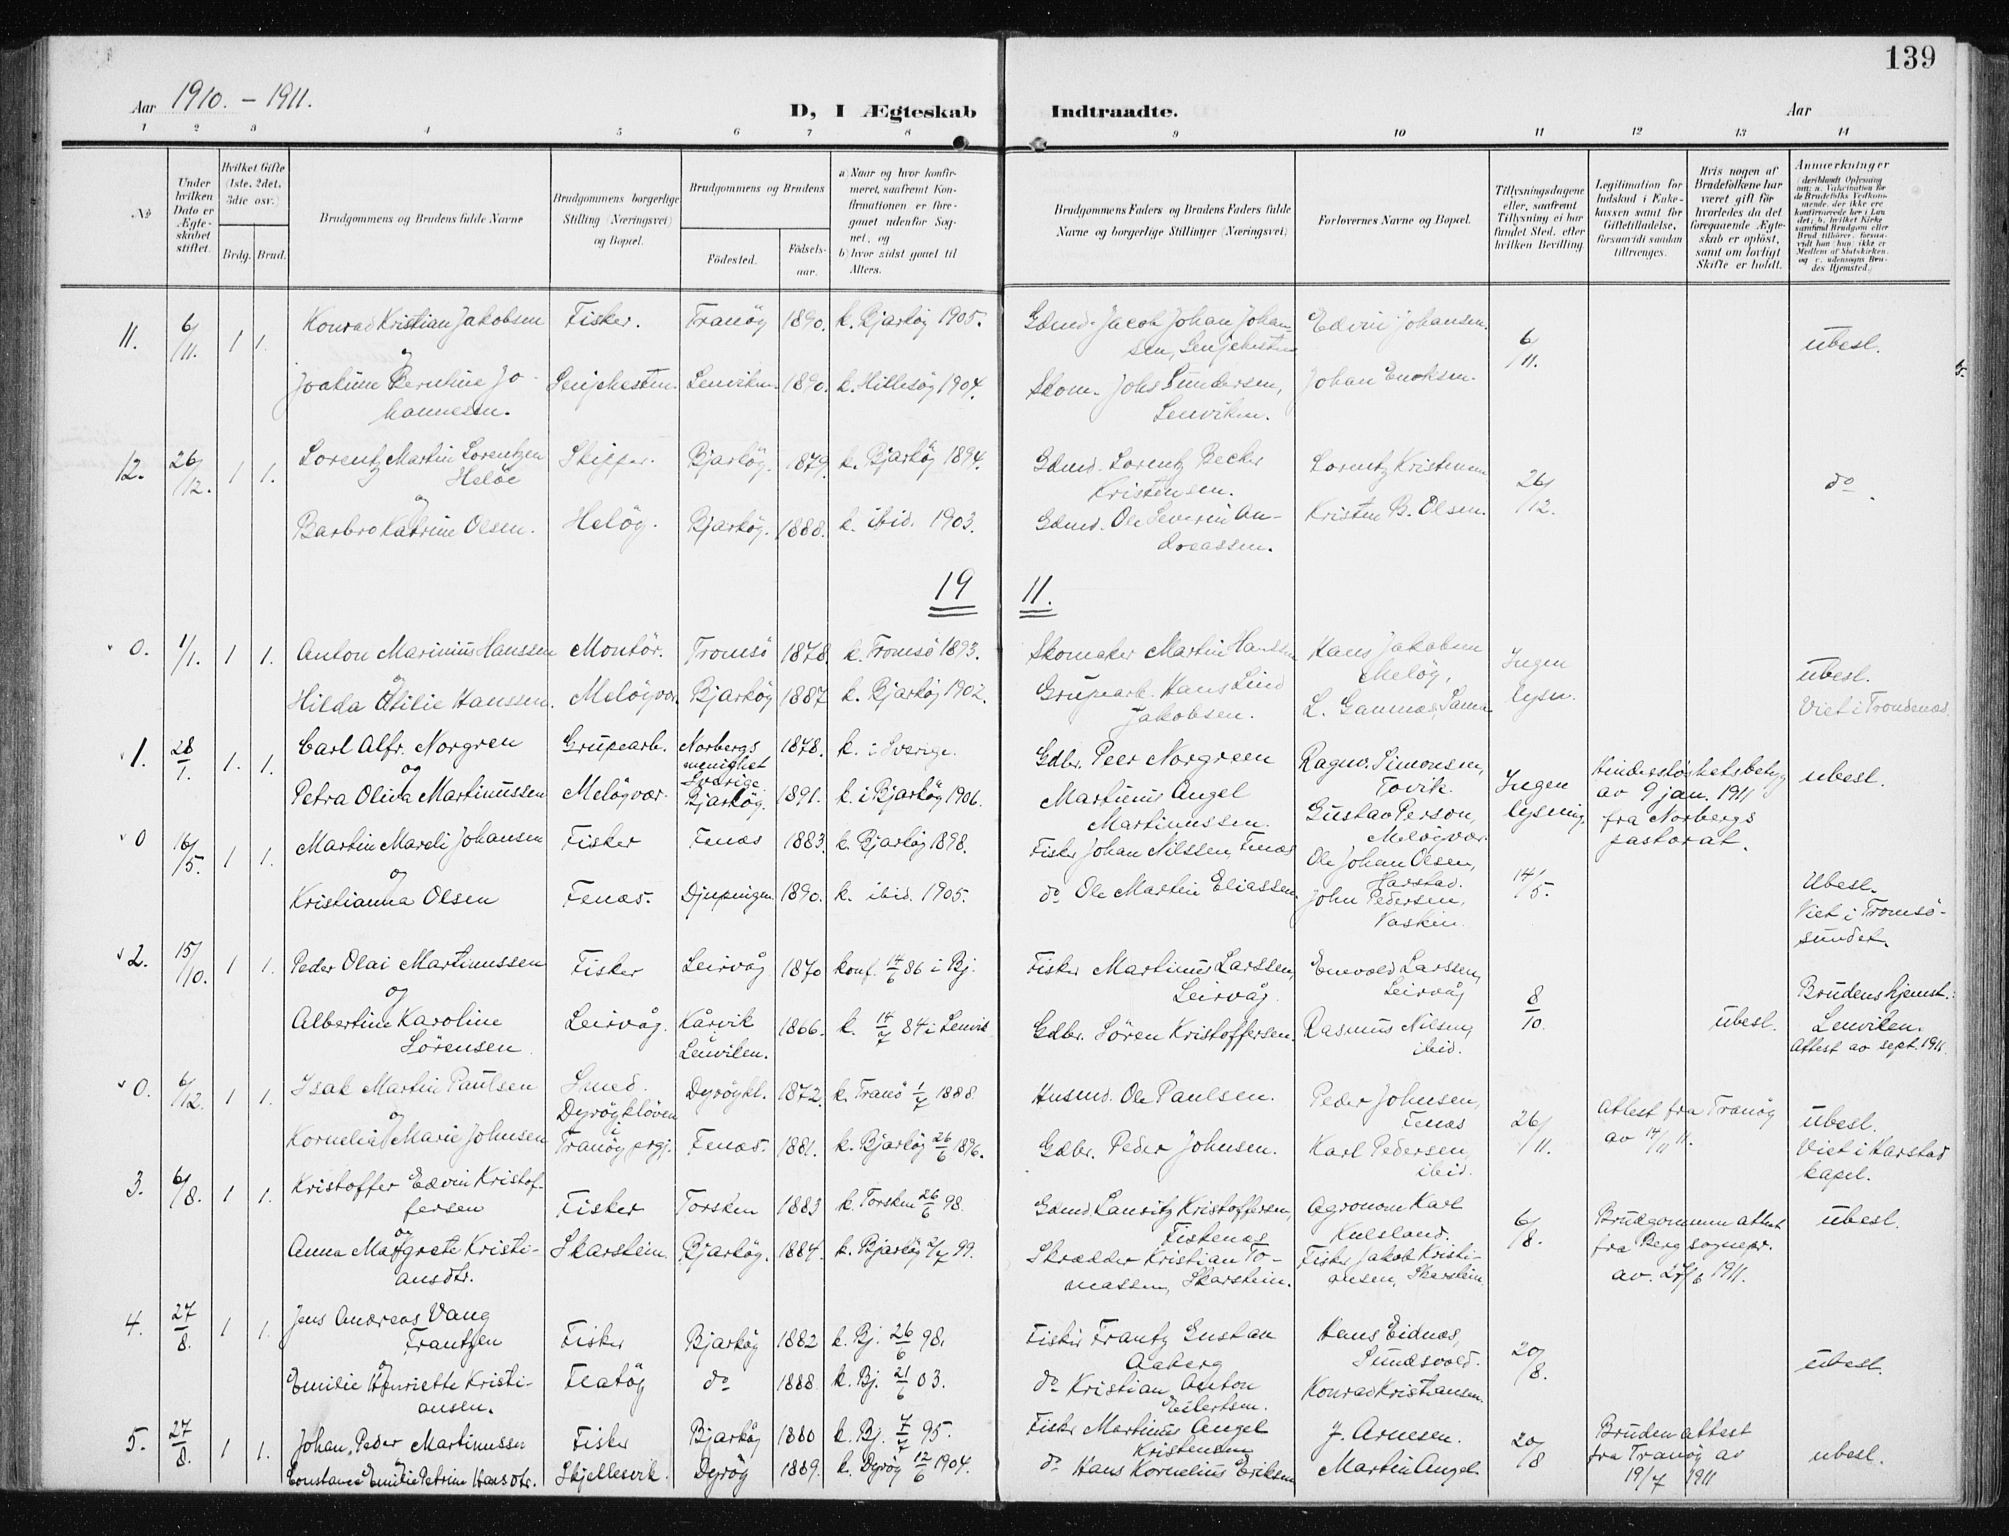 139
Aar 1910. – 1911.
D, I Ægteskab Indtraadte.
Aar
1 2 3 4 5 6 7 8 9 10 11 12 13 14
No
Under hvilken Dato er Ægteskabet stiftet.
Hvilket Gifte (1ste, 2det, 3die osv.)
Brdg. Brud.
Brudgommens og Brudens fulde Navne
Brudgommens borgerlige Stilling (Næringsvei) og Bopæl.
Brudgommens og Brudens
Födested. Födsels-aar.
a) Naar og hvor konfirmeret, saafremt Konfirmationen er foregaaet udenfor Sognet, og
b) hvor sidst gaaet til Alters.
Brudgommens Faders og Brudens Faders fulde Navne og borgerlige Stillinger (Næringsvei)
Forlovernes Navne og Bopæl.
Tillysningsdagene eller, saafremt Tillysning ei har fundet Sted, efter hvilken Bevilling.
Legitimation for Indskud i Enkekassen samt for Giftetilladelse, forsaavidt saadan tiltrænges.
Hvis nogen af Brudefolkene har været gift för hvorledes da det foregaaende Ægteskab er oplöst, samt om lovligt Skifte er holdt.
Anmærkninger
11. 6/11. 1 1. Konrad Kristian Jakobsen Fisker. Tranöy 1890. k. Bjarköy 1905. Gdmd. Jacob Johan Johansen, Senjehesten Edvin Johansen. 6/11. ubesl.
og
Joakime Berntine Johannesen. Senjehesten. Lenviken. 1890. k. Hillesöy 1904. Skom. Johs Gundersen, Lenviken. Johan Enoksen.
12. 26/12. 1 1. Lorentz Martin Lorentzen Helöe Skipper. Bjarköy. 1879. k. Bjarköy 1894. Gdmd. Lorentz Becker Kristensen. Lorentz Kristensen 26/12. do.
og
Barbro Katrine Olsen. Helöy. Bjarköy. 1888. k. ibid. 1903. Gdmd. Ole Severin Andreassen. Kristen B. Olsen.
19 11.
0. 1/1. 1 1. Anton Marinius Hanssen Montör. Tromsö 1878. k. Tromsö 1893. Skomaker Martin Hanssen Hans Jakobsen Meløy, Ingen lysn. ubesl.
og
Hilda Otilie Hanssen. Meløyvær. Bjarköy 1887 k. Bjarköy 1902. Grupearb. Hans Lind Jakobsen. Viet i Trondenæs.
1. 28/1. 1. 1. Carl Alfr. Norgren Grupearb. Norbergs menighet Sverige 1878. k. i Sverige. Gdbr. Peer Norgreen Ragnv. Simonsen, Tovik. Ingen lysning Hinderslöshetsbetyg av 9 jan. 1911 fra Norbergs pastorat. ubesl.
og
Petra Oliva Martinussen Meløyvær. Bjarköy. 1891. k. i Bjarköy 1906. Martinus Angel Martinussen. Gustav Person, Meløyvær.
0 16/5. 1 1. Martin Mareli Johansen Fisker Fenæs 1883. k. Bjarköy 1898. Fisker Johan Nilssen, Fenæs Ole Johan Olsen, Harstad. 14/5. Ubesl. Viet i Tromsösundet.
og
Kristianna Olsen Fenæs. Djupvigen 1890. k. ibid. 1905. do Ole Martin Eliassen John Pedersen,
2. 15/10. 1 1. Peder Olai Martinussen Fisker Leirvåg 1870 konf. 14/6 86 i Bj. Fisker Martinus Larssen, Leirvåg. Enevold Larssen, Leirvåg 8/10. ubesl. Brudens hjemst.: Lenviken. Attest av sept. 1911.
og
Albertine Karoline Sörensen Leirvåg. Kårvik Lenviken. 1866. k. 14/7 84 i Lenvik Gdbr. Sören Kristoffersen. Rasmus Nilsen, ibid.
0. 6/12. 1 1. Isak Martin Paulsen Smed. Dyröykl. 1872. k. Tranö 1/7 1888. Husmd. Ole Paulsen. Peder Johnsen, Fenæs 26/11. Attest fra Tranöy av 14/11 11. ubesl. Viet i Harstad kapel.
og
Kornelia Marie Johnsen Dyröyklöven i Tranöy prgj. Fenæs. 1881. k. Bjarköy 26/6 1896. Gdbr. Peder Johnsen. Karl Pedersen, ibid.
3. 6/8. 1 1. Kristoffer Edvin Kristoffersen Fisker Torsken 1883 k. Torsken 26/6 98. Gdmd. Lauritz Kristoffersen, Fiskenæs Agronom Karl Kulsland. 6/8. Brudgommen attest fra Berg sognepr. av. 27/6 1911. ubesl.
og
Anna Margrete Kristiansdtr. Skarstein. Bjarköy. 1884. k. Bjarköy 2/7 99. Skrædder Kristian Tomassen, Skarstein. Fisker Jakob Kristiansen, Skarstein
4. 27/8. 1 1. Jens Andreas Vang Frantzen Fisker Bjarköy 1882 k. Bj. 26/6 98. Fisker Frantz Gustav Aaberg Hans Eidnæs, Sundsvold. 20/8. ubesl.
og
Emilie Henriette Kristiansen. Flatöy do 1888. k. Bj. 21/6 03. do Kristian Anton Eilertsen. Konrad Kristiansen.
5. 27/8. 1 1. Johan Peder Martinussen Fisker Bjarköy 1880 k. Bj. 7/7 95. Fisker Martinus Angel Kristensen J. Arnesen. 20/8 Bruden attest fra Tranöy av 19/7 1911 ubesl.
og
Constance Emilie Petrine Hansdtr. Skjellesvik. Dyröy 1889. k. Dyröy 12/6 1904. do Hans Kornelius Eriksen Martin Angel